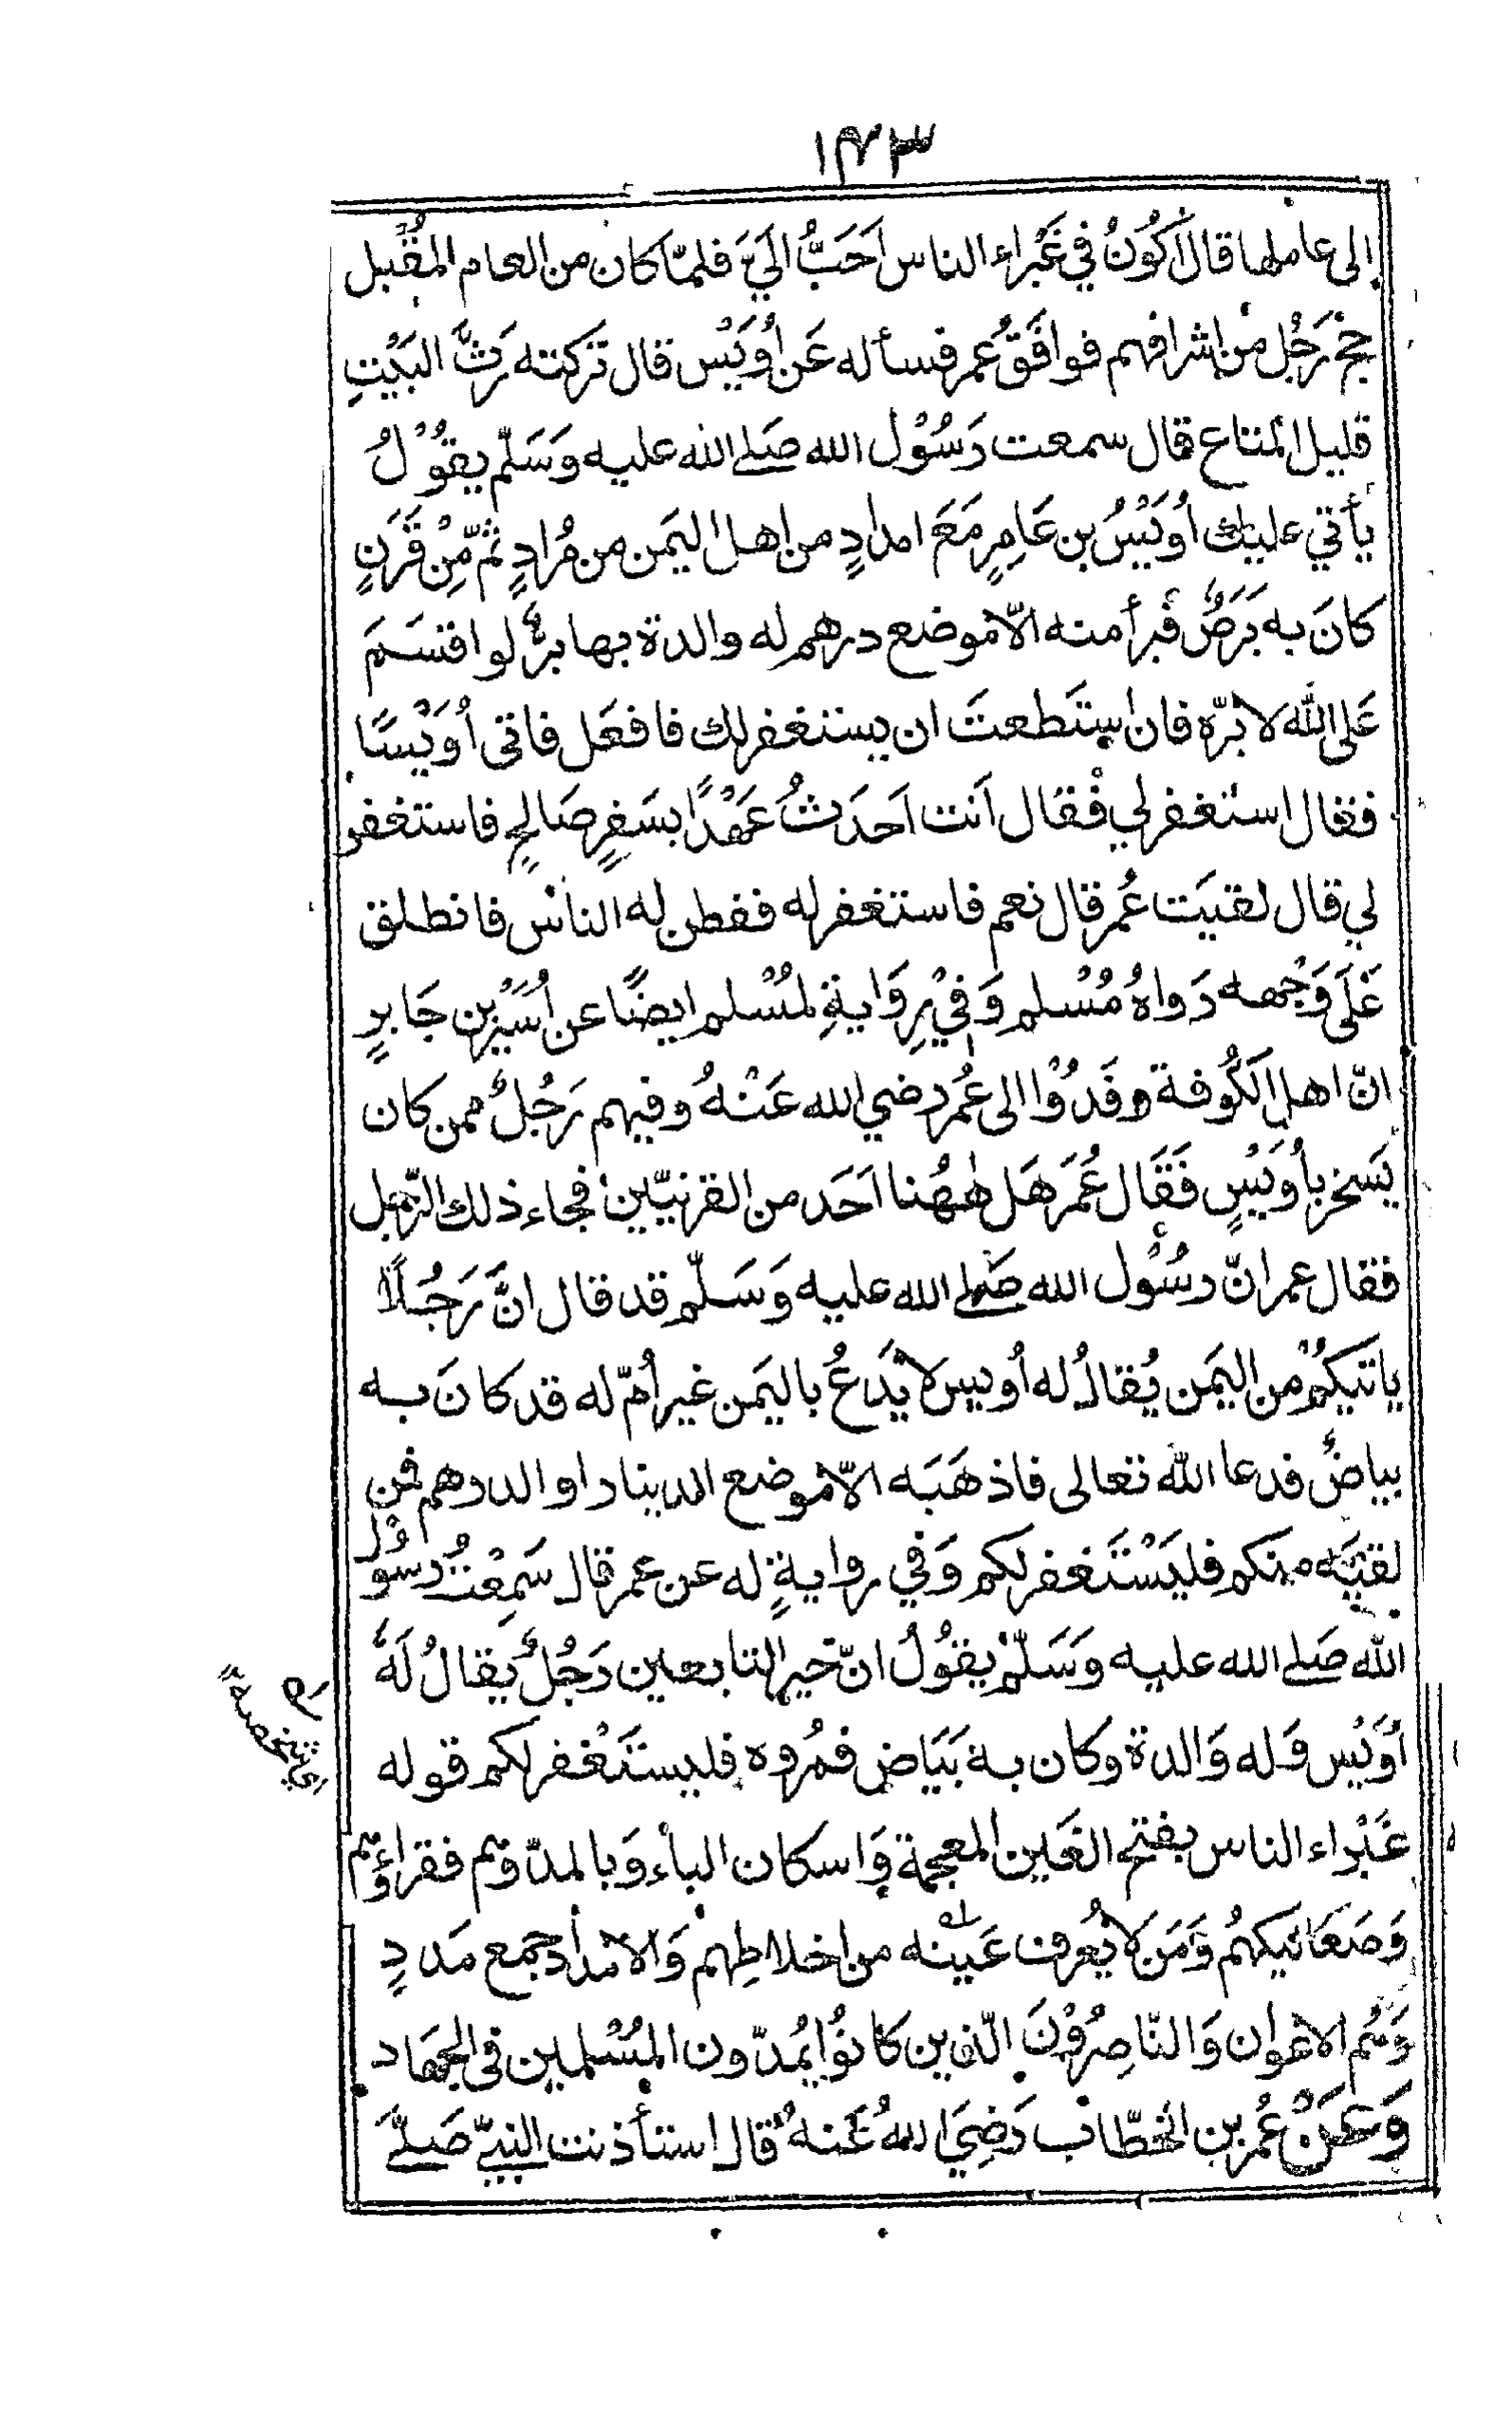 ١٤٣
إلى عاملها قال أكُونُ في غَبْراء الناس اَحَبُّ اِلَيَّ فلمّا كان من العام المُقْبل
حجّ رَجُل من اشرافهم فوافَقَ عُمر فسأله عَن أُوَيْس قال تركته رَثَّ البَيْتِ
قليل المتاع قال سمعت رَسُوْل الله صَلى الله عليه وَسَلّم يقُوْلُ
يأتي عليك أُوَيْسُ بن عَامِرٍ مَعَ امدادٍ من اهل اليَمن من مُرادٍ ثمّ مِّنْ قَرَنٍ
كانَ به بَرَصٌ فبرأ منه الّا موضع درهم له والدة بها برٌّ لو اقسَمَ
عَلى الله لابَرّه فان استَطعتَ ان يستغفر لك فافعَل فاتى أوَيْسًا
فقال استغفر لي فقال اَنت اَحَدَثُ عَهْدًا بسَفرٍ صَالحٍ فاستغفر
لي قال لقيَت عُمر قال نعم فاستغفر له ففطن له الناس فانطلق
عَلَى وَجْهه رَواهُ مُسْلم وَفِيْ رِوَايةٍ لمُسْلم ايضًا عن اُسَيْر بن جَابرٍ
انّ اهل الكُوفة وفَدُوْا الى عُمر رضي الله عَنْهُ وفيهم رَجُلٌ ممن كان
يَسخر بأُوَيْسٍ فَقَال عُمَر هَل هٰهُنا اَحَد من القرنيّين فجاء ذلك الرّجل
فقال عمر انّ رسُوْل الله صَلى الله عليه وَسَلّم قد قال انَّ رَجُلًا
ياتيكمُ من اليَمن يُقالُ له أُويس لا يَدَعُ باليَمن غير أُمّ له قد كانَ به
بياضٌ فدعا الله تعالى فاذهَبَه الّا موضع الدينار او الدرهم فمن
لقيَه منكم فليَسْتَغفر لكم وَفي روايةٍ له عن عمر قال سَمِعْتُ رسُوْل
الله صَلى الله عليه وَسَلّمْ يقُولُ انّ خير التابعين رَجُلٌ يقالُ لَهٗ
أُوَيْس وَله وَالدة وكان به بَيَاض فمُروه فليستَغْفر لكم قوله
غَبْراء الناس بفتح الغَين المعجمة وَاسكان الباء وَبالمدّ وهم فقراؤهم
وَصَعَاليكهُم وَمَن لا يُعرف عَينه من اخلاطِهم وَالامدَاد جَمع مَددٍ
وَهُم الاعْوان وَالنّاصِرُوْنَ الّذين كانوُا يُمدّون المُسْلمين في الجهَاد
وَعَنْ عُمر بن الخطّاب رَضِيَ اللهُ عَنهُ قال استأذنت النبيّ صَلَّى